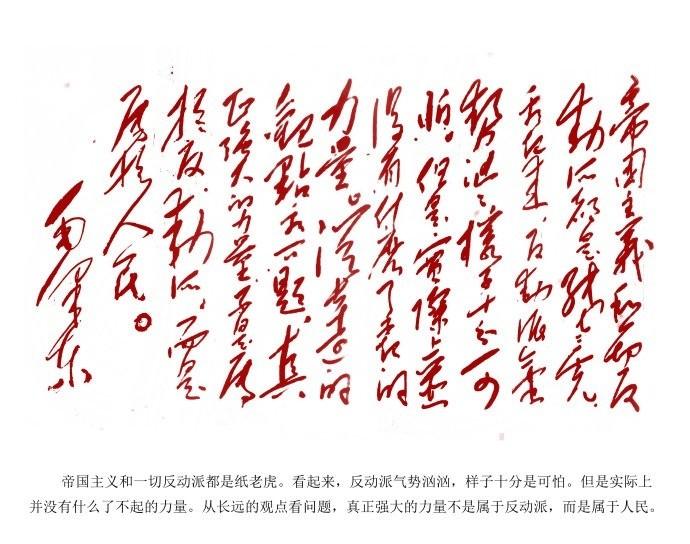 帝国主義和一切反
動派都是纸老虎。
看起来,反動派气
势汹汹,樣子十分可
怕。但是,實際上並
没有什麽了不起的
力量。從長遠的
觀點看问題,真
正强大的力量不是属
於反動派,而是
属於人民。
毛澤东
帝国主义和一切反动派都是纸老虎。看起来，反动派气势汹汹，样子十分是可怕。但是实际上
并没有什么了不起的力量。从长远的观点看问题，真正强大的力量不是属于反动派，而是属于人民。